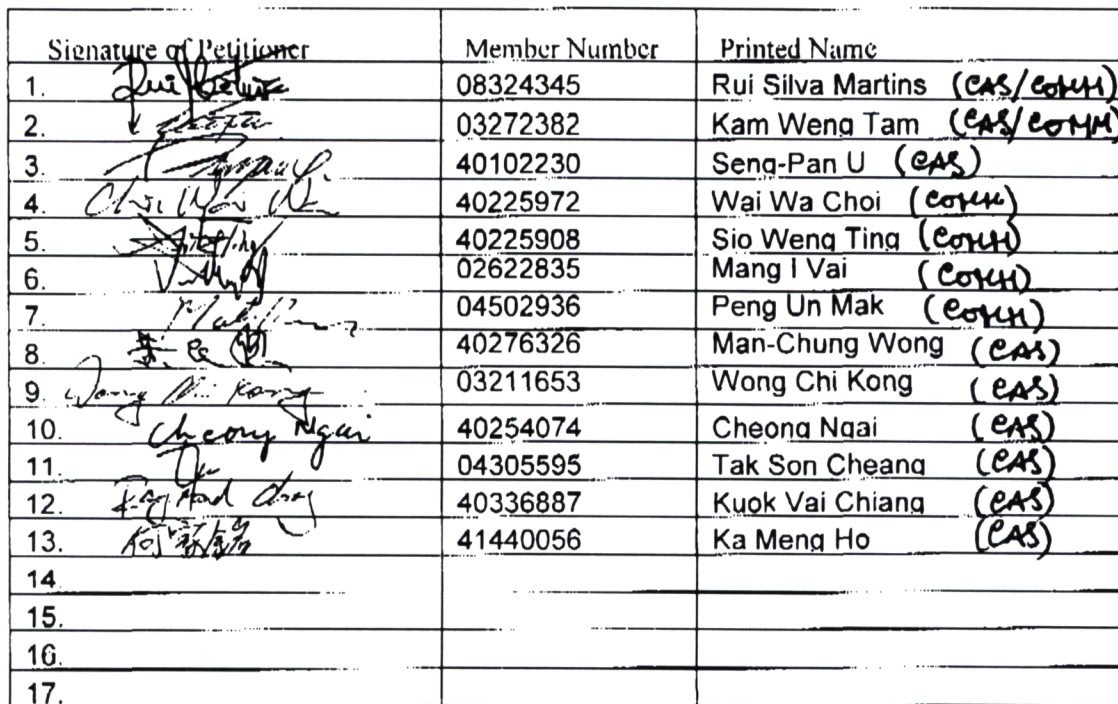 Signature of Petitioner Member Number Printed Name
1. 08324345 Rui Silva Martins (CAS/COMM)
2. 03272382 Kam Weng Tam (CAS/COMM)
3. 40102230 Seng-Pan U (CAS)
4. Choi Wai Wa 40225972 Wai Wa Choi (COMM)
5. 40225908 Sio Weng Ting (COMM)
6. 02622835 Mang I Vai (COMM)
7. 04502936 Peng Un Mak (COMM)
8. 40276326 Man-Chung Wong (CAS)
9. Wong Chi Kong 03211653 Wong Chi Kong (CAS)
10. Cheong Ngai 40254074 Cheong Ngai (CAS)
11. 04305595 Tak Son Cheang (CAS)
12. 40336887 Kuok Vai Chiang (CAS)
13. 41440056 Ka Meng Ho (CAS)
14.
15.
16.
17.